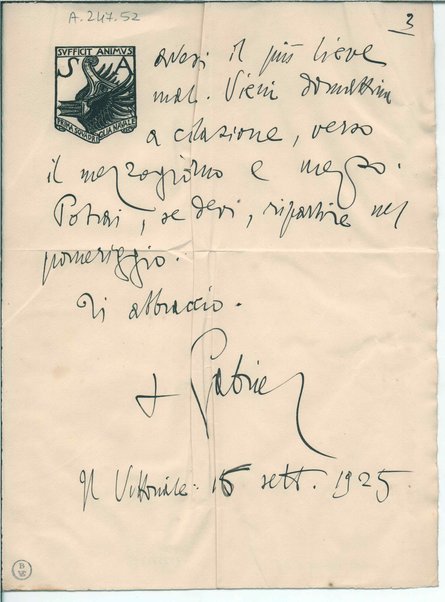 A. 247.52
3
SVFFICIT ANIMVS
S A
PRIMA SQUADRIGLIA NAVALE
avessi il più lieve
mal. Vieni domattina
a colazione, verso
il mezzogiorno e mezzo.
Potrai, se devi, ripartire nel
pomeriggio.
Ti abbraccio.
+ Gabriel
Il Vittoriale: 15 sett. 1925
B